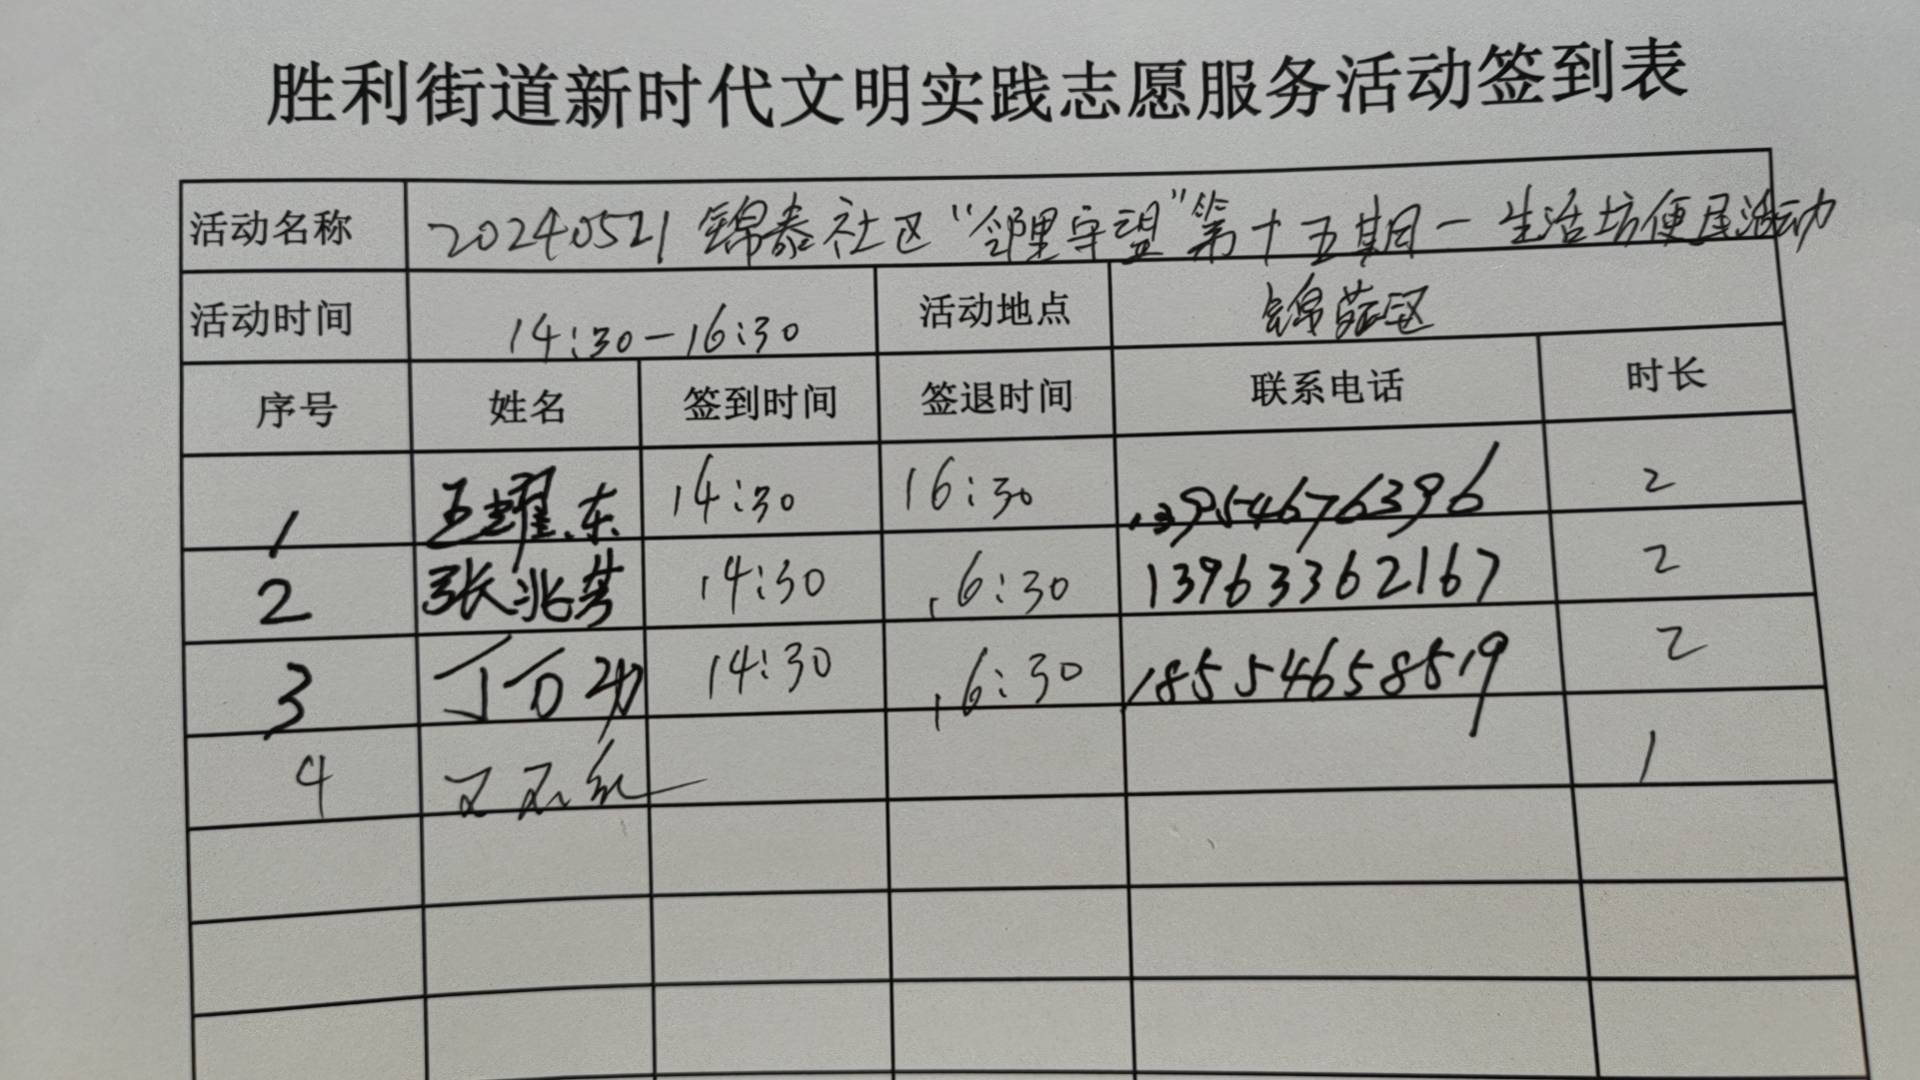 胜利街道新时代文明实践志愿服务活动签到表
活动名称 20240521 锦泰社区“邻里守望”第十五期一生活坊便民活动
活动时间 14:30-16:30 活动地点 锦苑区
序号 姓名 签到时间 签退时间 联系电话 时长
1 王耀东 14:30 16:30 13954676396 2
2 张兆芳 14:30 16:30 13963362167 2
3 丁万勋 14:30 16:30 18554658519 2
4 1